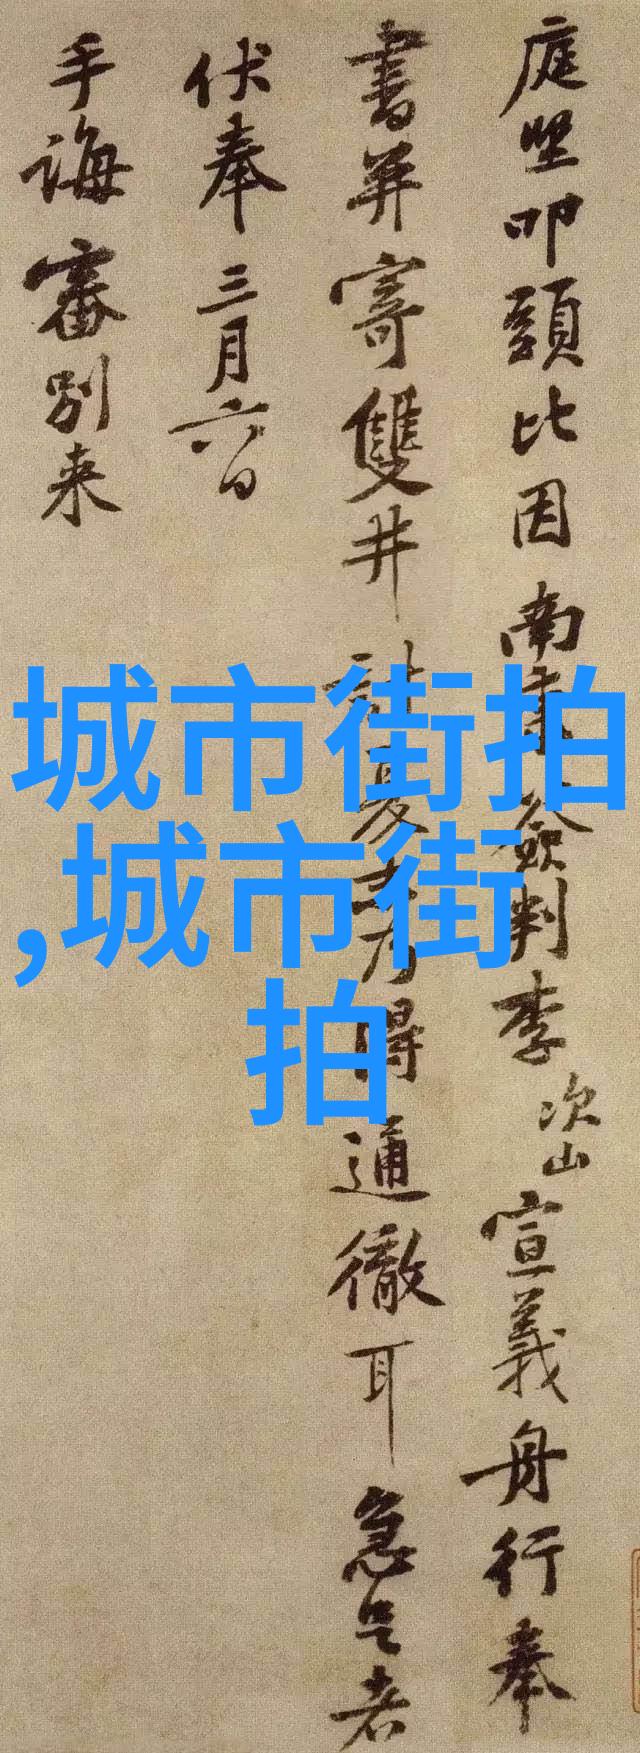 庭堅叩頭比因南康僉判李次山宣義舟行奉
書并寄雙井計夏末乃得通徹耳急足者
伏奉三月六日
手誨審別來
城市街拍
,城市街
拍